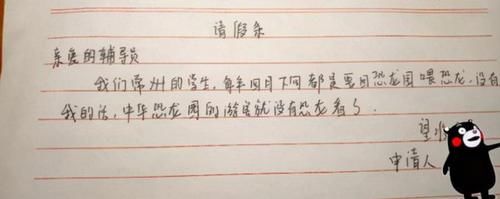 请假条
亲爱的辅导员
我们常州的学生，每年四月下旬都是要回恐龙园喂恐龙，没有
我的话，中华恐龙园的游客就没有恐龙看了.
望
申请人